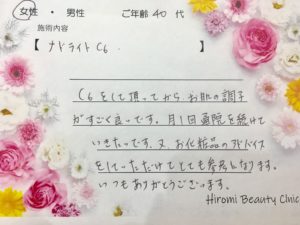 女性 ・ 男性　ご年齢 40 代
施術内容
【 ナドライト C6. 】
C6をして頂いてから、お肌の調子
がすごく良いです。月1回通院を続けて
いきたいです。又、お化粧品のアドバイス
をしていただけてとても参考になります。
いつもありがとうございます。
Hiromi Beauty Clinic